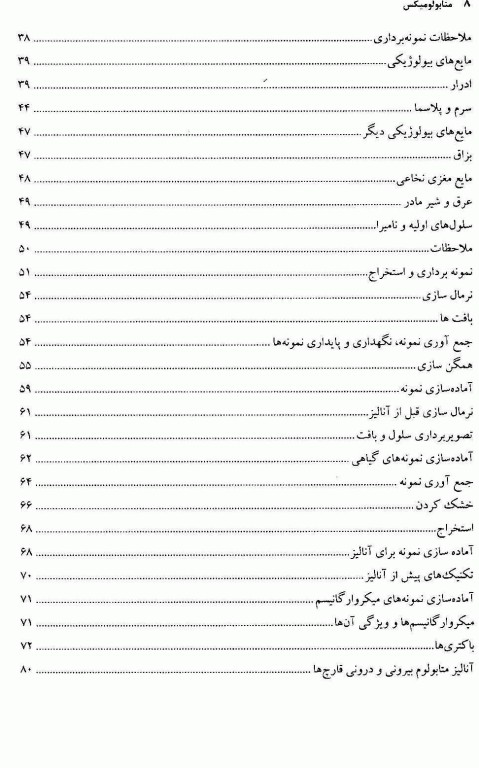 ۸ متابولومیکس
ملاحظات نمونه‌برداری ۳۸
مایع‌های بیولوژیکی ۳۹
ادرار ۳۹
سرم و پلاسما ۴۴
مایع‌های بیولوژیکی دیگر ۴۷
بزاق ۴۷
مایع مغزی نخاعی ۴۸
عرق و شیر مادر ۴۹
سلول‌های اولیه و نامیرا ۴۹
ملاحظات ۵۰
نمونه برداری و استخراج ۵۱
نرمال سازی ۵۴
بافت ها ۵۴
جمع آوری نمونه، نگهداری و پایداری نمونه‌ها ۵۴
همگن سازی ۵۵
آماده‌سازی نمونه ۵۹
نرمال سازی قبل از آنالیز ۶۱
تصویربرداری سلول و بافت ۶۱
آماده‌سازی نمونه‌های گیاهی ۶۲
جمع آوری نمونه ۶۴
خشک کردن ۶۶
استخراج ۶۸
آماده سازی نمونه برای آنالیز ۶۸
تکنیک‌های پیش از آنالیز ۷۰
آماده‌سازی نمونه‌های میکروارگانیسم ۷۱
میکروارگانیسم‌ها و ویژگی آن‌ها ۷۱
باکتری‌ها ۷۲
آنالیز متابولوم بیرونی و درونی قارچ‌ها ۸۰